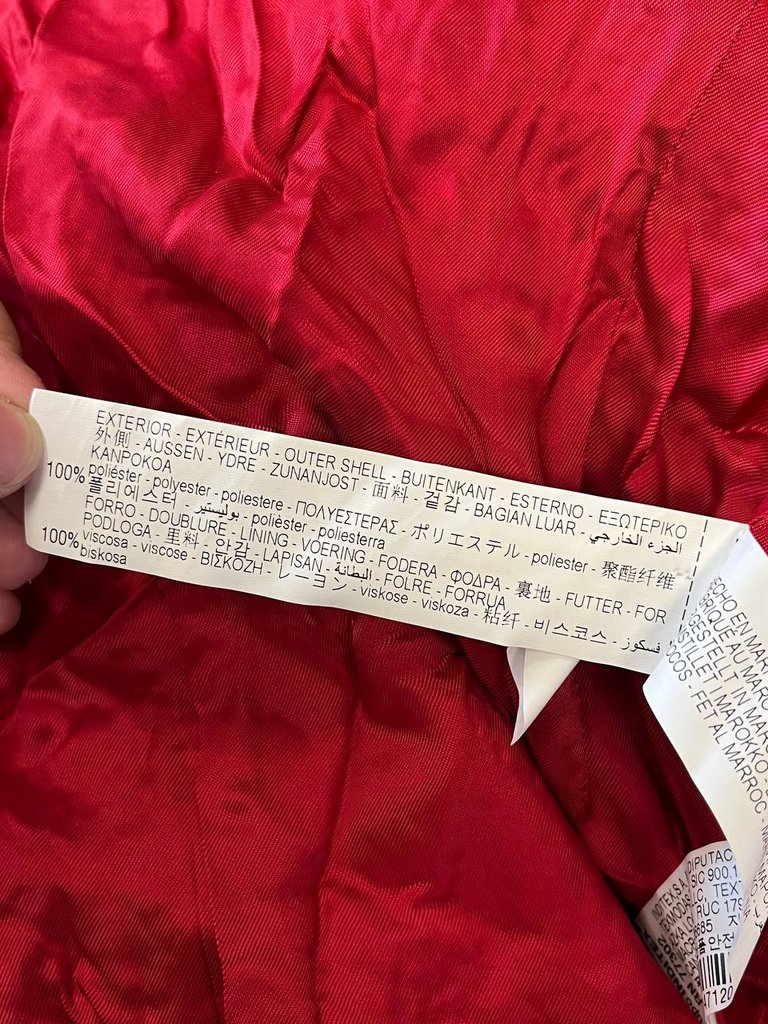 EXTERIOR - EXTÉRIEUR - OUTER SHELL - BUITENKANT - ESTERNO - ΕΞΩΤΕΡΙΚΟ
外側 - AUSSEN - YDRE - ZUNANJOST - 面料 - 겉감 - BAGIAN LUAR - الجزء الخارجي
KANPOKOA
100% poliéster - polyester - poliestere - ΠΟΛΥΕΣΤΕΡΑΣ - ポリエステル - poliester - 聚酯纤维
폴리에스터 - بوليستير - polièster - poliesterra
FORRO - DOUBLURE - LINING - VOERING - FODERA - ΦΟΔΡΑ - 裏地 - FUTTER - FOR
PODLOGA - 里料 - 안감 - LAPISAN - البطانة - FOLRE - FORRUA
100% viscosa - viscose - ΒΙΣΚΟΖΗ - レーヨン - viskose - viskoza - 粘纤 - 비스코스 - فسكوز
biskosa
ECHO EN MAR
BRIQUÉ AU MAROC
NGESTELLT IN MAR
NSTILLET I MAROKKO
OCOS - FET AL MARROC - M
DIPUTAC
INDITEX S.A.
SIC 900.1
C, TEXT
RUC 179
3685
안전
47120